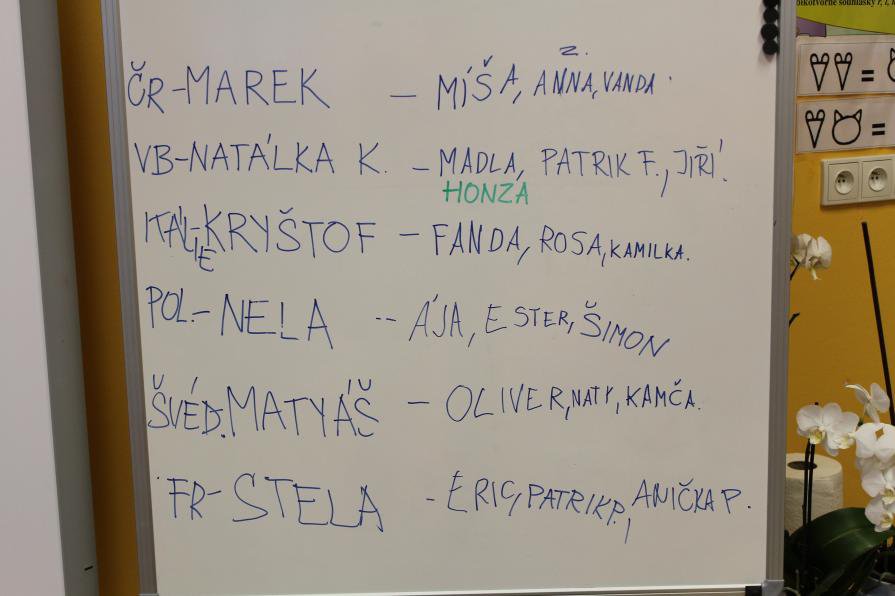 obkotvorné souhlásky ř, l,
Z.
ČR-MAREK – MÍŠA, ANNA, VANDA
VB-NATÁLKA K. – MADLA, PATRIK F., JIŘÍ.
HONZA
ITÁLIE-KRYŠTOF – FANDA, ROSA, KAMILKA.
POL.- NELA -- ÁJA, ESTER, ŠIMON
ŠVÉD. MATYÁŠ – OLIVER, NATY, KAMČA.
FR- STELA - ERIC, PATRIK P., ANIČKA P.